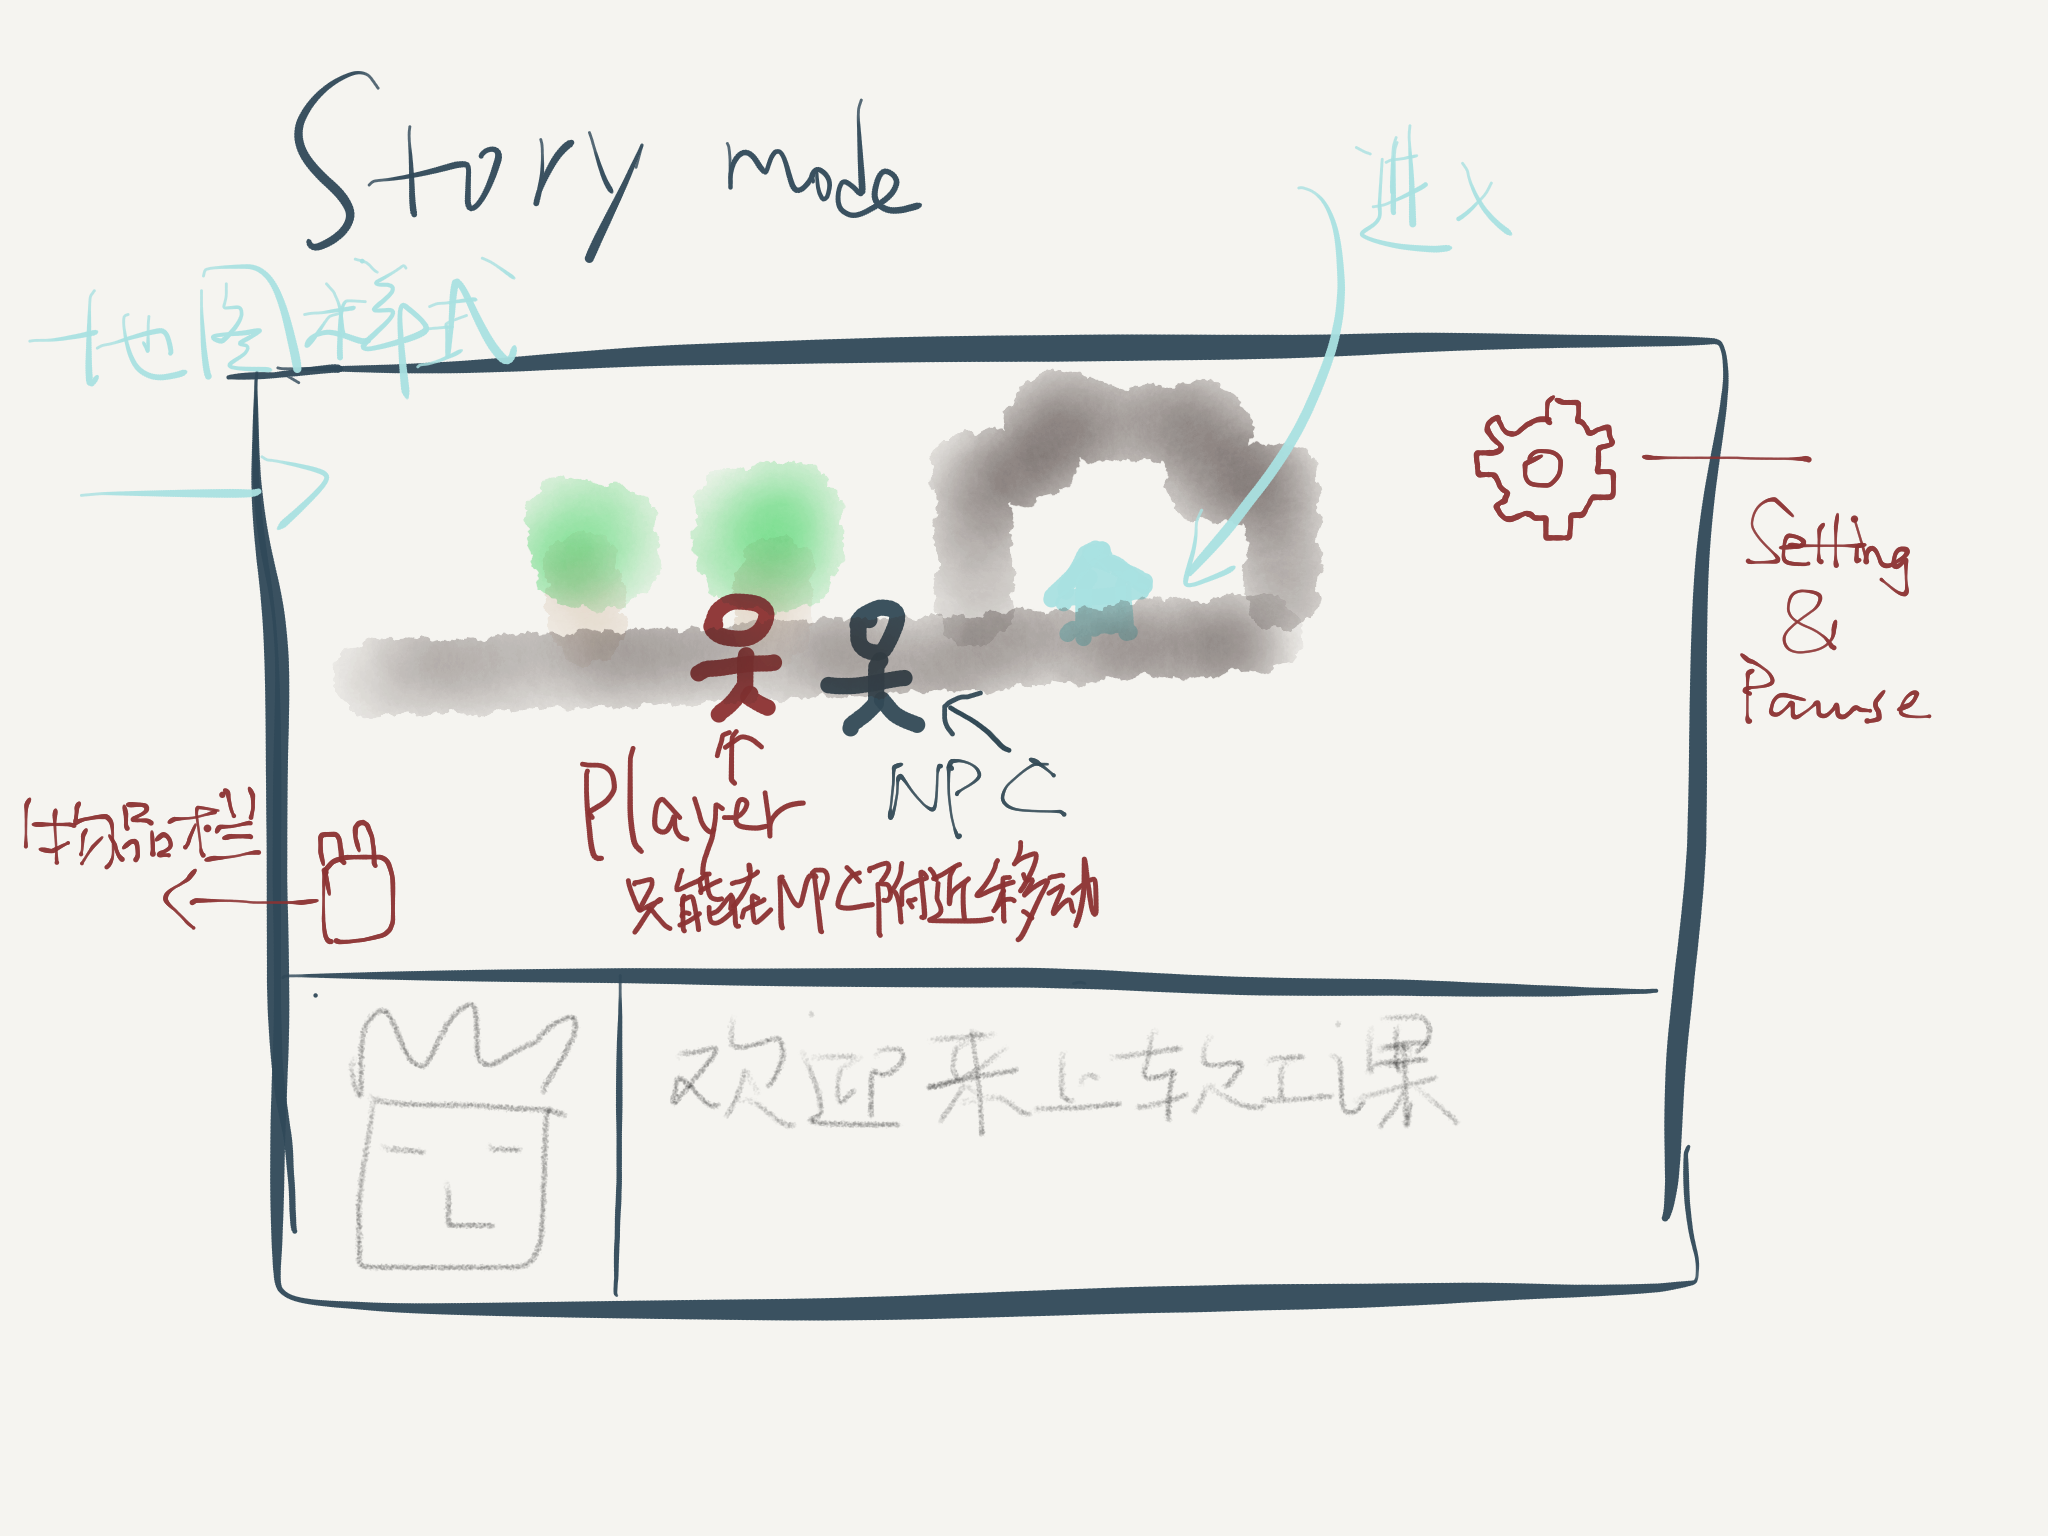 Story mode
进入
地图样式
Setting
&
Pause
物品栏
Player
NPC
只能在NPC附近移动
欢迎来上软工课